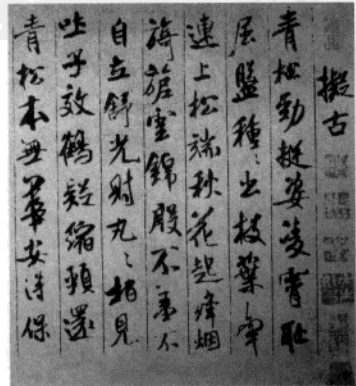 擬古
青松勁挺姿凌霄耻
屈盤種〻出枝葉牽
連上松端秋花起絳烟
旖旎雲錦殷不羞不
自立舒光射丸〻柏見
吐子效鶴疑縮頸還
青松本無華安得保